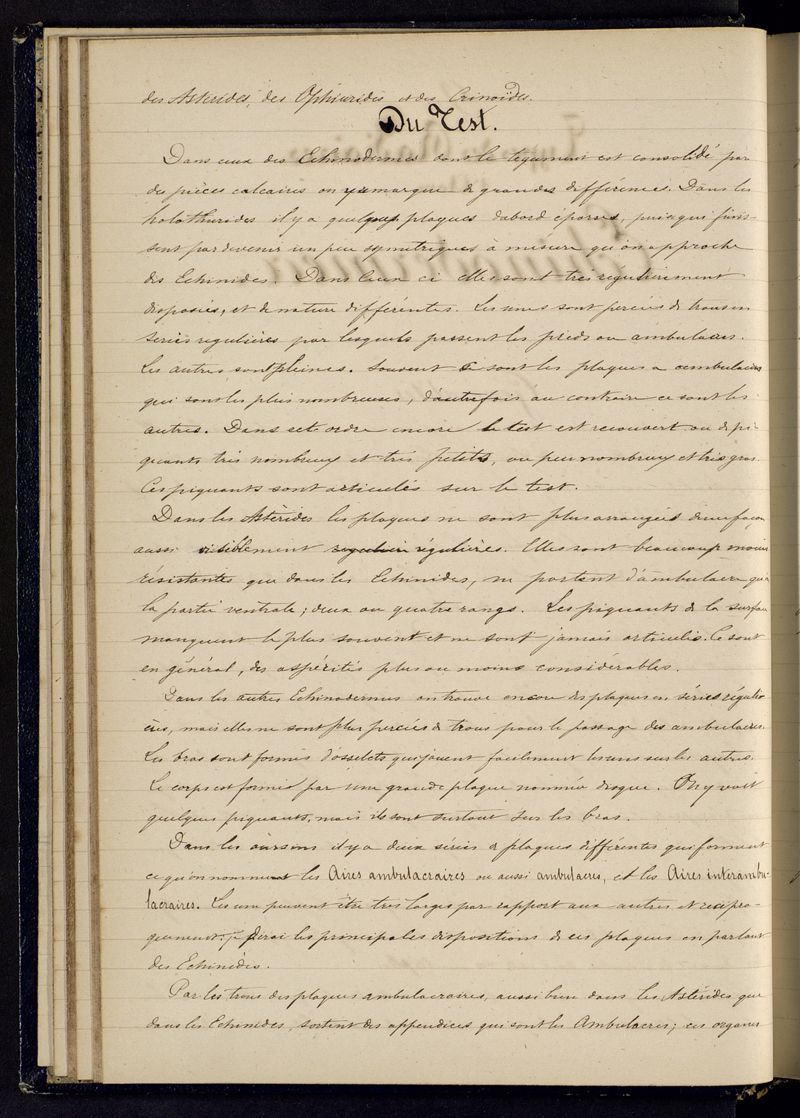 des Astérides, des Ophiurides et des Crinoïdes.
Du Test.
Dans ceux des Echinodermes dont le tégument est consolidé par
des pièces calcaires on y remarque de grandes différences. Dans les
holothurides il y a quelques plaques d'abord éparses, puis qui finis-
sent par devenir un peu symétriques à mesure qu'on approche
des Echinides. Dans ceux ci elles sont très régulièrement
disposées, et de nature différentes. Les unes sont percées de trous en
séries régulières par lesquels passent les pieds ou ambulacres.
Les autres sont pleines. Souvent ce sont les plaques a ambulacres
qui sont les plus nombreuses, d'autrefois au contraire ce sont les
autres. Dans cet ordre encore le test est recouvert ou de pi-
quants très nombreux et très petits, ou peu nombreux et très gros.
Ces piquants sont articulés sur le test.
Dans les Astérides les plaques ne sont plus arrangées d'une façon
aussi visiblement régulières. Elles sont beaucoup moins
résistantes que dans les Echinides, ne portent d'ambulacre qu'à
la partie ventrale; deux ou quatre rangs. Les piquants de la surface
manquent le plus souvent et ne sont jamais articulés. Ce sont
en général, des aspérités plus ou moins considérables.
Dans les autres Echinodermes on trouve encore des plaques en séries réguli-
ères, mais elles ne sont plus percées de trous pour le passage des ambulacres.
Les bras sont formés d'osselets qui jouent facilement les uns sur les autres.
Le corps est formé par une grande plaque nommée disque. On y voit
quelques piquants, mais ils sont surtout sur les bras.
Dans les oursins il y a deux séries de plaques différentes qui forment
ce qu'on nomment les Aires ambulacraires ou aussi ambulacres, et les Aires interambu-
lacraires. Les unes peuvent être très larges par rapport aux autres et récipro-
quement. Je dirai les principales dispositions de ces plaques en parlant
des Echinides.
Par les trous des plaques ambulacraires, aussi bien dans les Astérides que
dans les Echinides, sortent des appendices qui sont les Ambulacres; ces organes